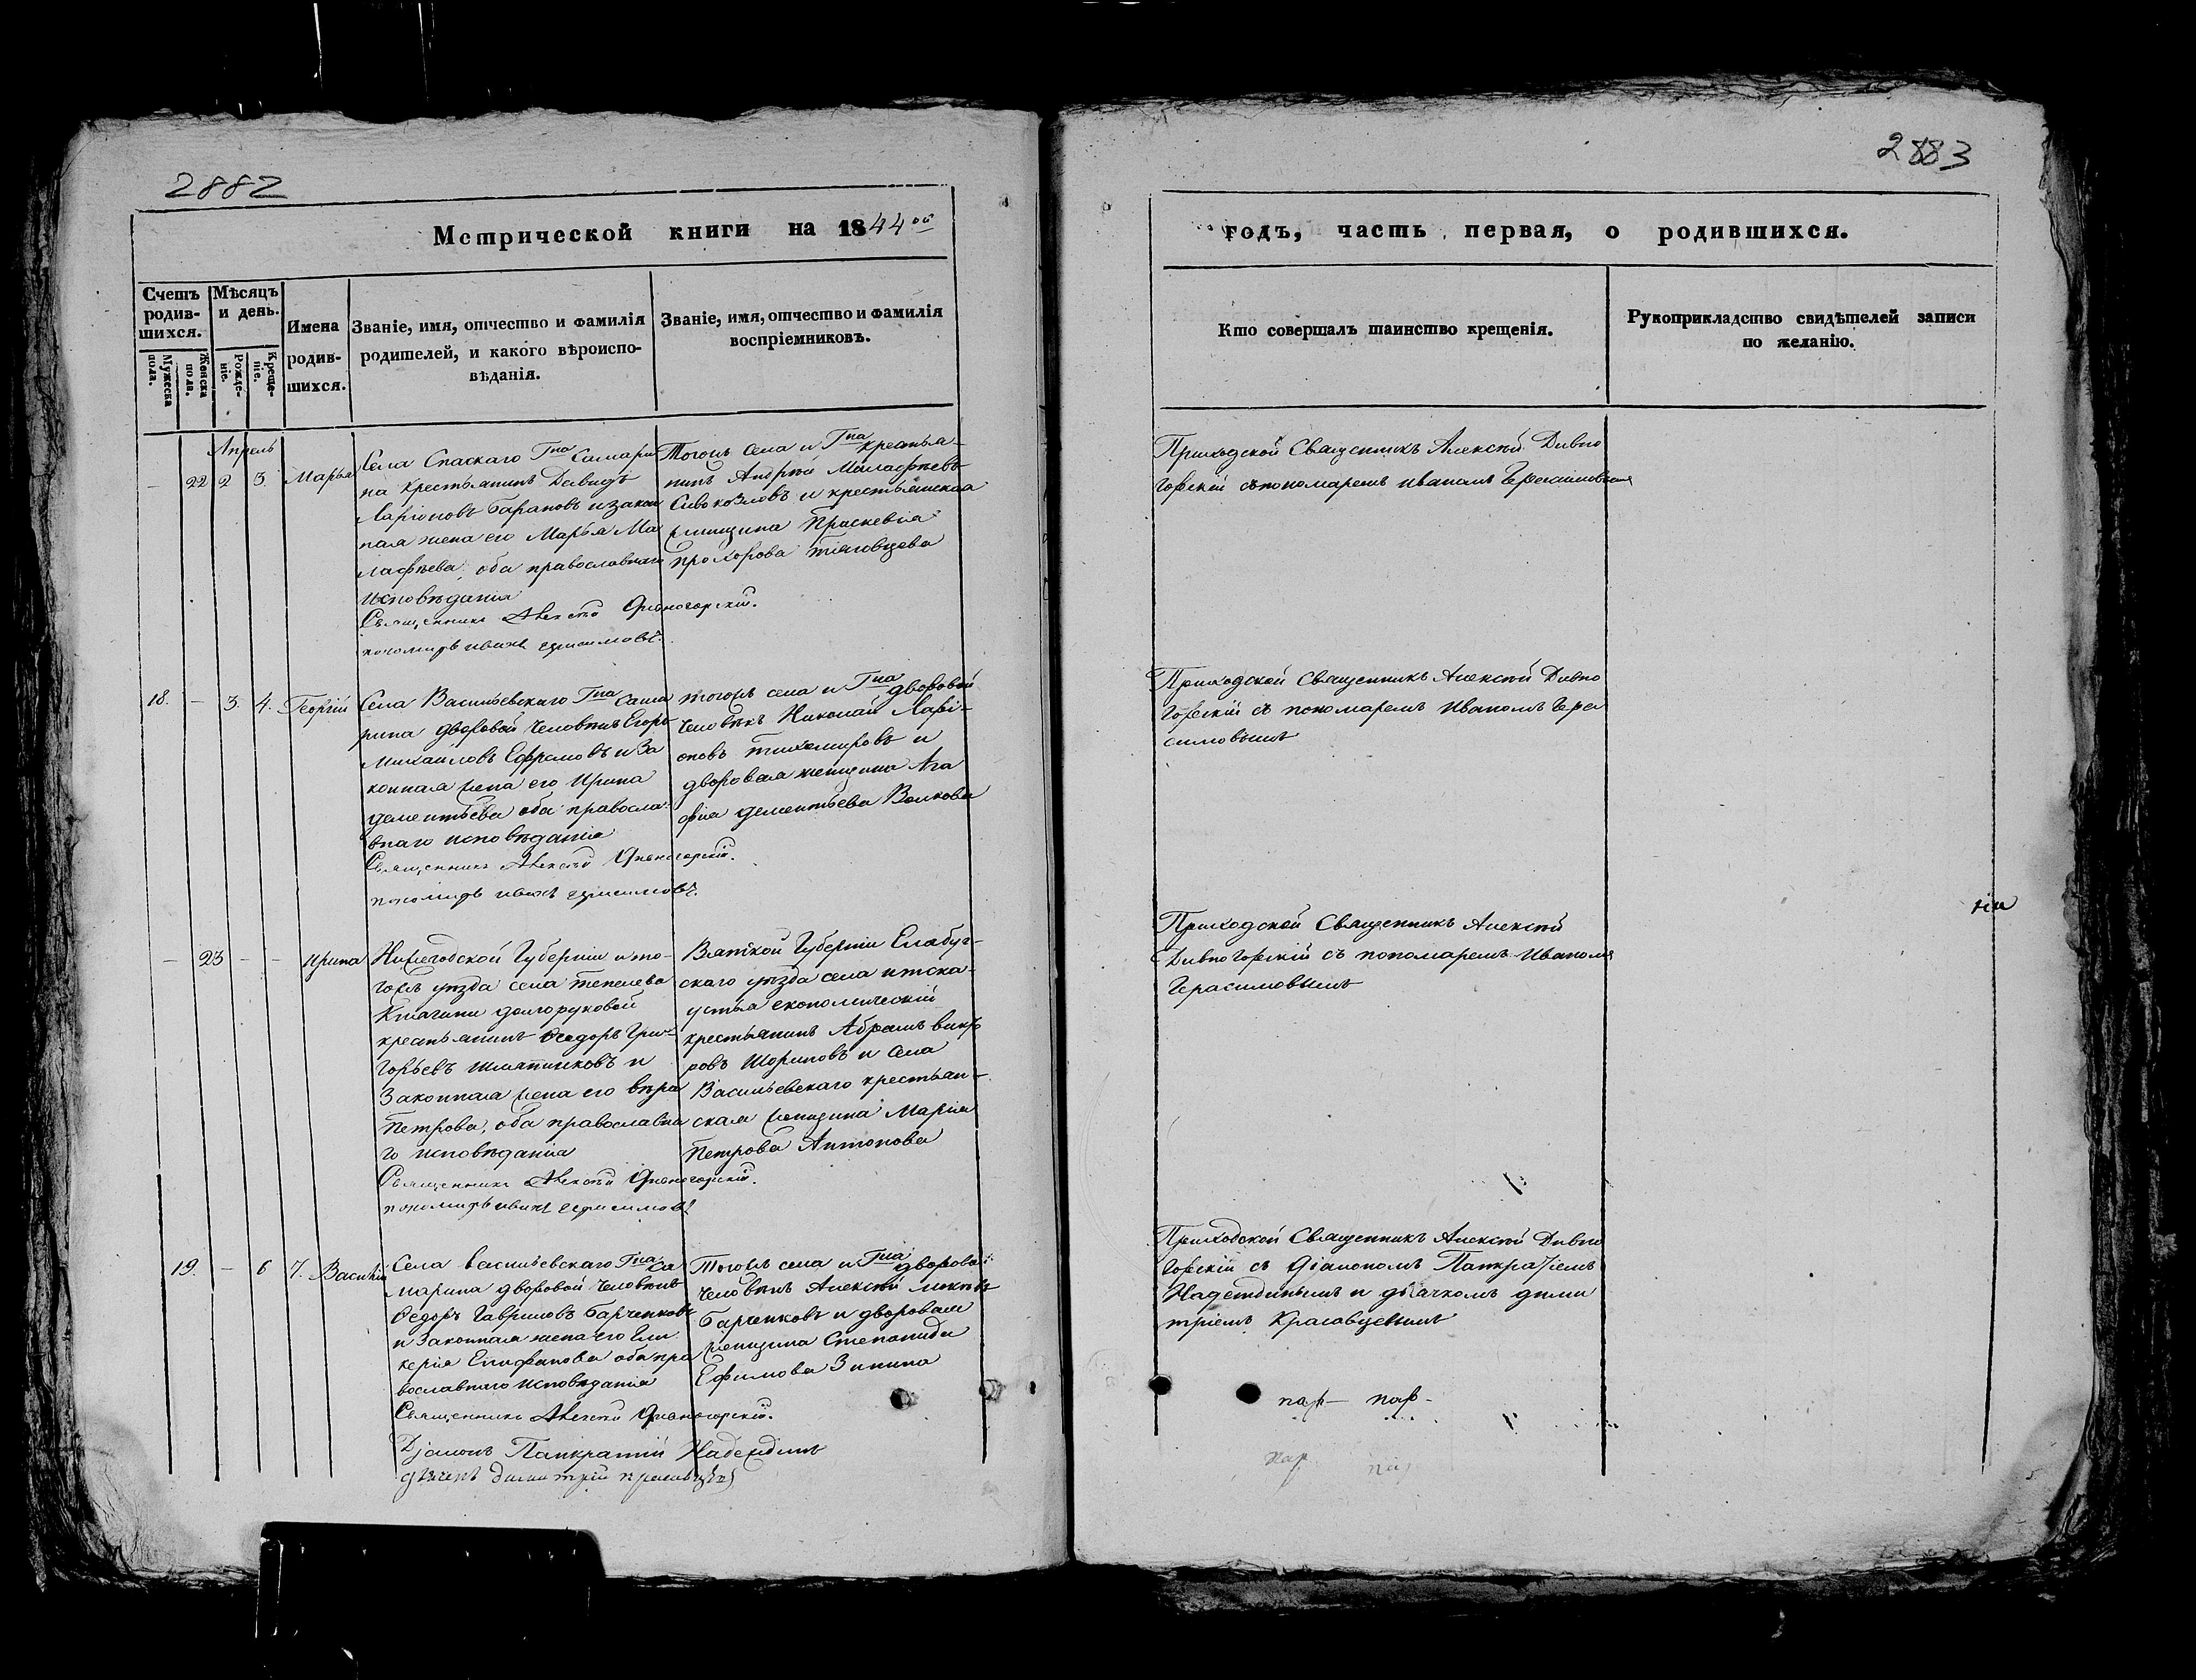 2882
Метрической книги на 1844ой
Счетъ родив-шихся.
Мѣсяцъ и день.
Мужеска пола.
Женска пола.
Рожде-ніе.
Креще-ніе.
Имена родив-шихся.
Званіе, имя, отчество и фамилія
родителей, и какого вѣроиспо-
вѣданія.
Званіе, имя, отчество и фамилія
воспріемниковъ.
Апрель
— 22 2 3. Марья
Села Спаскаго Гна Самари
на крестьянинъ Давидъ
Ларіоновъ Барановъ и закон
ная жена его Марья Ма
лафѣева, оба православнаго
исповѣданія
Священникъ Алексѣй Дивногорскій.
пономарь иванъ герасимовъ.
Тогожъ села и Гна крестья-
нинъ Андрѣй Малафѣевъ
Сивокозловъ и крестьянская
женщина Праскевія
Прохорова
18. — 3. 4. Георгій
Села Васильевскаго Гна Сама
рина дворовой человѣкъ Егоръ
Михаиловъ Ефремовъ и за
конная жена его Ирина
дементьева оба правосла-
внаго исповѣданія
Священникъ Алексѣй Дивногорскій.
пономарь иванъ герасимовъ.
тогожъ села и Гна дворовой
человѣкъ Николай Ларі-
оновъ тихомировъ и
дворовая женщина Ага
фія дементьева Волкова
— 23 — — ирина
Нижегодской Губерніи и то-
гожъ уѣзда села тепелева
Княгини долгоруковой
крестьянинъ Ѳеодоръ Гри-
горьевъ и
Законная жена его вѣра
Петрова, оба православна
го исповѣданія
Священникъ Алексѣй Дивногорскій.
пономарь иванъ герасимовъ
Вятской Губерніи Елабуг-
скаго уѣзда села
устья економическій
крестьянинъ Абрамъ
и села
Васильевскаго крестьян-
ская женщина Марія
Петрова Антонова
19. — 6 7. Василій
Села васильевскаго Гна Са
марина дворовой человѣкъ
Ѳедоръ Гавриловъ Барченковъ
и Законная жена его Гли
керія Епифанова оба пра
вославнаго исповѣданія
Священникъ Алексѣй Дивногорскій.
Діаконъ Панкратій Надеждинъ
дьячекъ димитрій красавцевъ
Тогожъ села и Гна дворовой
человѣкъ Алексѣй
Барченковъ и дворовая
женщина Степанида
Ефимова Зинина
2883
годъ, часть первая, о родившихся.
Кто совершалъ таинство крещенія.
Рукоприкладство свидѣтелей записи
по желанію.
Приходской Священникъ Алексѣй Дивно
горскій съ пономаремъ иваномъ Герасимовымъ
Приходской Священникъ Алексѣй Дивно
горскій съ пономаремъ Иваномъ Гера
симовымъ
Приходской Священникъ Алексѣй
Дивногорскій съ пономаремъ Иваномъ
Герасимовымъ
Приходской Священникъ Алексѣй Дивно
горскій съ Діакономъ Панкратіемъ
Надеждинымъ и дьячкомъ дими
тріемъ Красавцевымъ
пар— пар-